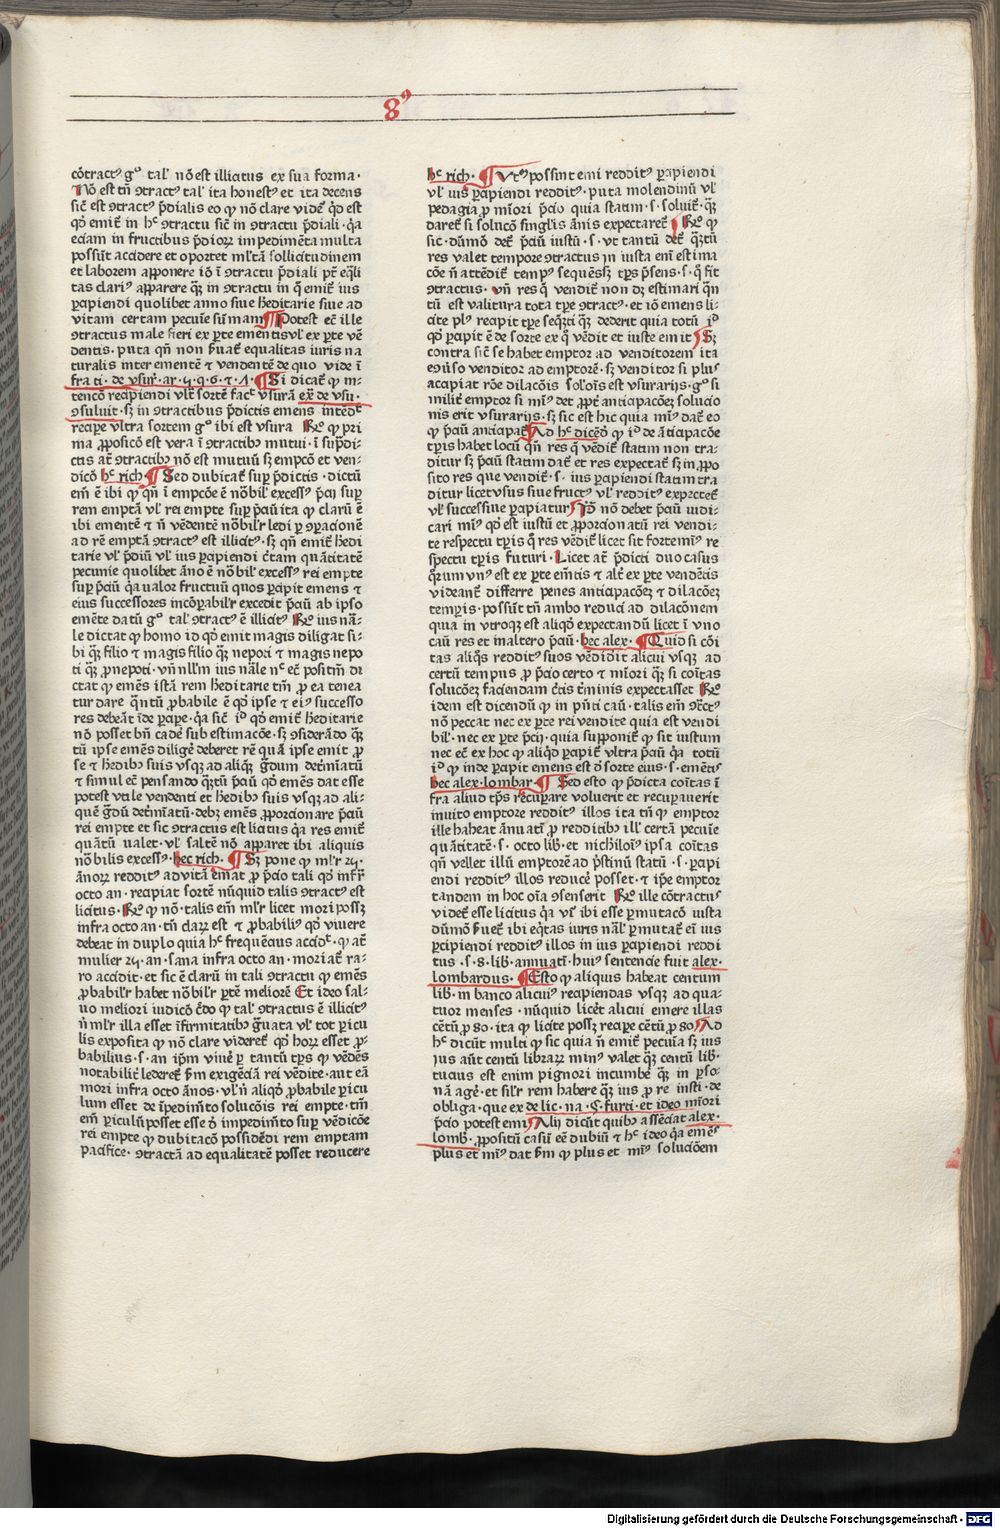 8⁹
cōtract⁹ gº tal' nō est illicitus ex sua forma·
Nō est tn̄ ꝯtract⁹ tal' ita honest⁹ et ita decens
sic̄ est ꝯtract⁹ p̄dialis eo ꝙ nō clare videt̄ qd̄ est
qd̄ emit̄ in hᶜ ꝯtractu sic̄ in ꝯtractu p̄diali· q̄a
eciam in fructibus p̄dioꝝ impedimēta multa
possūt accidere et oportet ml̄tā sollicitudinem
et laborem apponere iō ī ꝯtractu p̄diali pt̄ eq̄li
tas clari⁹ apparere qꝫ in ꝯtractu in q̄ emit̄ ius
ꝑcipiendi quolibet anno siue h̄editarie siue ad
vitam certam pecuīe sūmam ¶ Potest ec̄ ille
ꝯtractus male fieri ex ꝑte ementis vl' ex ꝑte vē
dentis· puta qn̄ non ẜuat̄ equalitas iuris na
turalis inter ementē ⁊ vendentē de quo vide ī
fra ti· de vsur̄· ar· ij· q· 6· ⁊ · ¶ Si dicat̄ ꝙ in
tencō recipiendi vlt̄ sortē facᵗ vsurā ex̄ de vsu·
ꝯsuluit· sꝫ in ꝯtractibus p̄dictis emens intēdᵗ
recipe vltra sortem gº ibi est vsura Rº ꝙ pri
ma ꝓposicō est vera ī ꝯtractibꝰ mutui· ī sup̄di-
ctis at̄ ꝯtractibꝰ nō est mutuū sꝫ empcō et ven-
dicō hᶜ rich· ¶ Sed dubitat̄ suꝑ p̄dictis· dictū
em̄ ē ibi ꝙ qn̄ ī empcōe ē nōbil' excess⁹ p̄cij suꝑ
rem emptā vl' rei empte suꝑ p̄ciū ita ꝙ clarū ē
ibi ementē ⁊ n̄ vēdentē nōbil'r ledi ꝑ ꝯꝑacionē
ad rē emptā ꝯtract⁹ est illicit⁹· sꝫ qn̄ emit̄ h̄edi
tarie vl' p̄diū vl' ius ꝑcipiendi c̄tam quātitatē
pecunie quolibet āno ē nōbil' excess⁹ rei empte
suꝑ p̄ciū q̄a valor fructuū quos ꝑcipit emens ⁊
eius successores incōꝑabil'r excedit p̄ciū ab ipso
emēte datū gº tal' ꝯtract⁹ ē illicit⁹ Rº ius nāa-
le dictat ꝙ homo id qd̄ emit magis diligat si-
bi qꝫ filio ⁊ magis filio qꝫ nepoti ⁊ magis nepo
ti qꝫ ꝓnepoti· vn̄ nll'm ius nāle nᶜ ec̄ positm̄ di
ctat ꝙ emēs istā rem h̄editarie tm̄ ꝓ ea tenea
tur dare q̄ntū ꝓbabile ē qd̄ ipse ⁊ ei⁹ successo
res debeāt īde ꝑcipe· q̄a sic̄ id qd̄ emit̄ h̄editarie
nō posset bn̄ cadē sub estimacōe· sꝫ ꝯsiderādo qꝫ
tū ipse emēs diligē deberet rē quā ipse emit ꝓ
se ⁊ h̄edibꝰ suis vsqꝫ ad aliqꝫ ḡdum det̄miatū
⁊ simul ec̄ pensando qꝫtū p̄ciū qd̄ emēs dat esse
potest vtile vendenti et h̄edibꝰ suis vsqꝫ ad ali-
quē ḡdū det̄minatū· debꝫ emēs ꝓporcionare p̄ciū
rei empte et sic ꝯtractus est licitus q̄a res emit̄
quātū ualet· vl' saltē nō apparet ibi aliquis
nōbilis excess⁹· hec rich· ¶ Sꝫ pone ꝙ ml'r xij·
ānoꝝ reddit⁹ ad vitā emat ꝓ p̄cio tali qd̄ infr̄
octo an· recipiat sortē nūquid talis ꝯtract⁹ est
licitus· Rº ꝙ nō· talis em̄ ml'r licet mori possꝫ
infra octo an· tn̄ claꝝ est ⁊ ꝓbabili⁹ qd̄ viuere
debeat in duplo quia hᶜ frequēcius accidᵗ· ꝙ at̄
mulier xij· an· sana infra octo an· moriat̄ ra-
ro accidit· et sic ē clarū in tali ꝯtractu ꝙ emēs
ꝓbabil'r habet nōbil'r ꝑtē meliorē Et ideo sal-
uo meliori iudicō c̄do ꝙ tal' ꝯtractus ē illicit⁹
n̄ ml'r illa esset īfirmitatibꝰ ḡuata vl' tot ꝑicu
lis exposita ꝙ nō clare videret̄ qd̄ hoꝝ esset ꝓ-
babilius· s· an ip̄m viuē ꝑ tantū tp̄s ꝙ vēdēs
notabilit̄ lederet̄ ẜm exigēciā rei vēdite· aut eā
mori infra octo ānos· vl' n̄ aliqd̄ ꝓbabile ꝑicu
lum esset de īpedim̄to solucōis rei empte· tm̄
em̄ ꝑiculū posset esse d̄ impedim̄to suꝑ vēdicōe
rei empte ꝙ dubitacō possidēdi rem emptam
pacifice· ꝯtractā ad equalitatē posset reducere
hᶜ rich· ¶ Vtꝝ possint emi reddit⁹ ꝑcipiendi
vl' ius ꝑcipiendi reddit⁹· puta molendinū vl'
pedagia ꝓ mīori p̄cio quia statim· s· soluit̄· qꝫ
daret̄ si solucō singl'is ānis expectaret̄ ¶ Rº ꝙ
sic· dūmō det̄ p̄ciū iustū· s· vt tantū det̄ qꝫtū
res valet tempore ꝯtractus in iusta em̄ estima
cōe n̄ attēdit̄ temp⁹ sequēs sꝫ tp̄s p̄sens· s· q̄ fit
ꝯtractus· vn̄ res q̄ vendit̄ non dꝫ estimari q̄n
tū est valitura tota tꝑe ꝯtract⁹· et iō emens li-
cite pl⁹ recipit tꝑe seqn̄ti qꝫ dederit quia totū id
qd̄ ꝑcipit ē de sorte ex q̄ vēdit et iuste emit ¶ Sꝫ
contra sic̄ se habet emptor ad venditorem ita
eꝯūso venditor ad emptorē· sꝫ venditor si plus
accipiat rōe dilacōis solōis est vsurarijs· gº si
milit̄ emptor si mi⁹ det ꝓpt̄ anticipacōeꝫ solucio
nis erit vsurarijs· sꝫ sic est hic quia mi⁹ dat̄ eo
ꝙ p̄ciū anticipat̄ ¶ Ad hᶜ dicēd̄ ꝙ id de āticipacōe
tꝑis habet locū qn̄ res q̄ vēdit̄ statim non tra-
ditur sꝫ p̄ciū statim dat̄ et res expectat̄ sꝫ in ꝓpo
sito res que vendit̄· s· ius ꝑcipiendi statim tra
ditur licet vsus siue fruct⁹ vl' reddit⁹ expectet̄
vl' successiue ꝑcipiatur ¶ Iō nō debet p̄ciū iudi-
cari mi⁹ qd̄ est iustū et ꝓporcionatū rei vendi-
te respectu tꝑis q̄ res vēdit̄ licet sit forte mi⁹ re
spectu tꝑis futuri· Licet at̄ p̄dicti duo casus
q̄rum vn⁹ est ex ꝑte em̄tis ⁊ alt̄ ex ꝑte vendētis
videant̄ differre penes anticipacōeꝫ ⁊ dilacōeꝫ
temꝑis· possūt tn̄ ambo reduci ad dilacōnem
quia in vtroqꝫ est aliqd̄ expectandū licet ī vno
caū res et in altero p̄ciū· hec alex· ¶ Quid si cōi
tas aliq̄s reddit⁹ suos vēdidit alicui vsqꝫ ad
certū tempus ꝓ p̄cio certo ⁊ mīori qꝫ si cōitas
solucōeꝫ faciendam c̄tis t̄minis expectasset Rº
idem est dicendū ꝙ in p̄nti caū· talis em̄ ꝯtct⁹
nō peccat nec ex ꝑte rei vendite quia est vendi
bil'· nec ex ꝑte p̄cij· quia supponit̄ ꝙ sit iustum
nec ec̄ ex hoc ꝙ aliqd̄ ꝑcipit̄ vltra p̄ciū q̄a totū
id ꝙ inde ꝑcipit emens est d̄ sorte eius· s· emētis
hec alex· lombar· ¶ Sed esto ꝙ p̄dicta cōitas ī
fra aliud tp̄s recuꝑare voluerit et recuꝑauerit
inuito emptore reddit⁹ illos ita tn̄ ꝙ emptor
ille habeat ānuatī ꝓ redditibꝰ ill' certā pecuīe
quātitatē· s· octo lib̄· et nichilo⁹ ipsa cōitas
qn̄ vellet illū emptorē ad p̄stinū statū· s· ꝑcipi
endi reddit⁹ illos reducē posset· ⁊ ip̄e emptor
tandem in hoc oīa ꝯsenserit Rº ille cōtractus
videt̄ esse licitus q̄a vr̄ ibi esse ꝑmutacō iusta
dūmō ẜuet̄ ibi eq̄tas iuris nāl' ꝑmutat̄ em̄ ius
ꝑcipiendi reddit⁹ illos in ius ꝑcipiendi reddi
tus· s· 8· lib̄· annuatī· hui⁹ sentencie fuit alex·
lombardus· ¶ Esto ꝙ aliquis habeat centum
lib̄· in banco alicui⁹ recipiendas vsqꝫ ad qua-
tuor menses· nūquid licet alicui emere illas
cētū ꝓ 80· ita ꝙ licite possꝫ recipe cētū ꝓ 80 ¶ Ad
hᶜ dicūt multi ꝙ sic quia n̄ emit̄ pecuīa sꝫ ius
ius aūt centū libraꝝ min⁹ valet qꝫ centū lib̄·
tucius est enim pignori incumbē qꝫ in ꝑso-
nā agē· et sil'r rem habere qꝫ ius ꝓ re· insti· de
obliga· que ex de lic· na· §· furti· et ideo mīori
p̄cio potest emi ¶ Alij dicūt quibꝰ assēciat alex·
lomb̄· ꝓpositū casū eē dubiū ⁊ hᶜ ideo q̄a emēs
plus et mi⁹ dat ẜm ꝙ plus et mi⁹ soluciōem
Digitalisierung gefördert durch die Deutsche Forschungsgemeinschaft · DFG